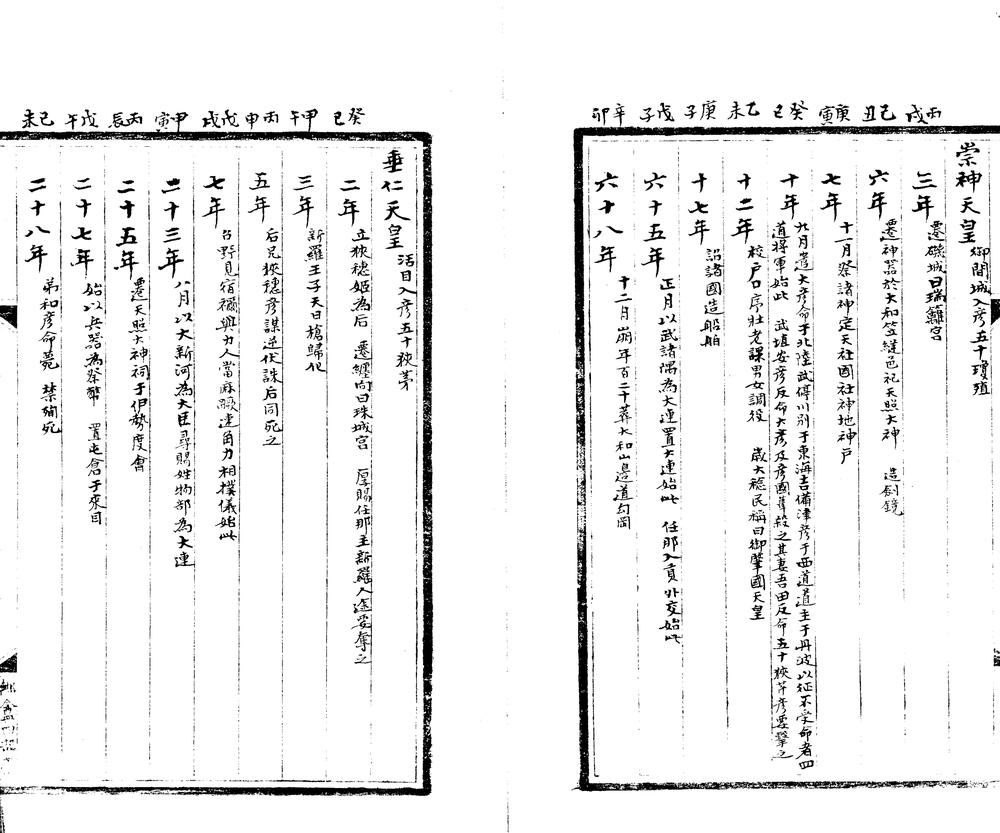 丙戌 己丑 庚寅 癸巳 乙未 庚子 戊子 辛卯
崇神天皇 御間城入彦五十瓊殖
三年 遷磯城曰瑞籬宮
六年 遷神器於大和笠縫邑祀天照大神 造劍鏡
七年 十一月祭諸神定天社國社神地神戸
十年 九月遣大彦命于北陸武渟川別于東海吉備津彦于西道道主于丹波以征不受命者四
道將軍始此 武埴安彦反命大彦及彦國葺殺之其妻吾田反命五十狹芹彦要擊之
十二年 校戸口序壯老課男女調役 歳大稔民稱曰御肇國天皇
十七年 詔諸國造船舶
六十五年 正月以武諸隅為大連置大連始此 任那入貢外交始此
六十八年 十二月崩年百二十葬大和山邊道勾岡
癸巳 甲午 丙申 戊戌 甲寅 丙辰 戊午 己未
垂仁天皇 活目入彦五十狹茅
二年 立狹穂姫為后 遷纏向曰珠城宮 厚賜任那王新羅人途要奪之
三年 新羅王子天日槍歸化
五年 后兄狹穂彦謀逆伏誅后同死之
七年 召野見宿禰與力人當麻蹶速角力相撲儀始此
二十三年 八月以大新河為大臣尋賜姓物部為大連
二十五年 遷天照大神祠于伊勢度會
二十七年 始以兵器為祭幣 置屯倉于來目
二十八年 弟和彦命薨 禁殉死